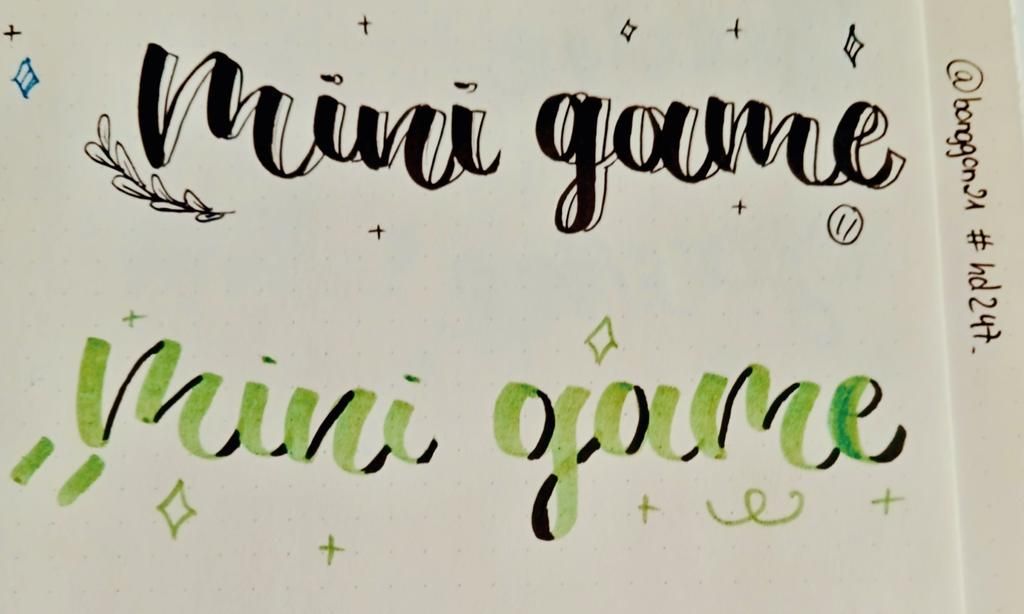 Mini game
Mini game
@bonggon21 #hd247.